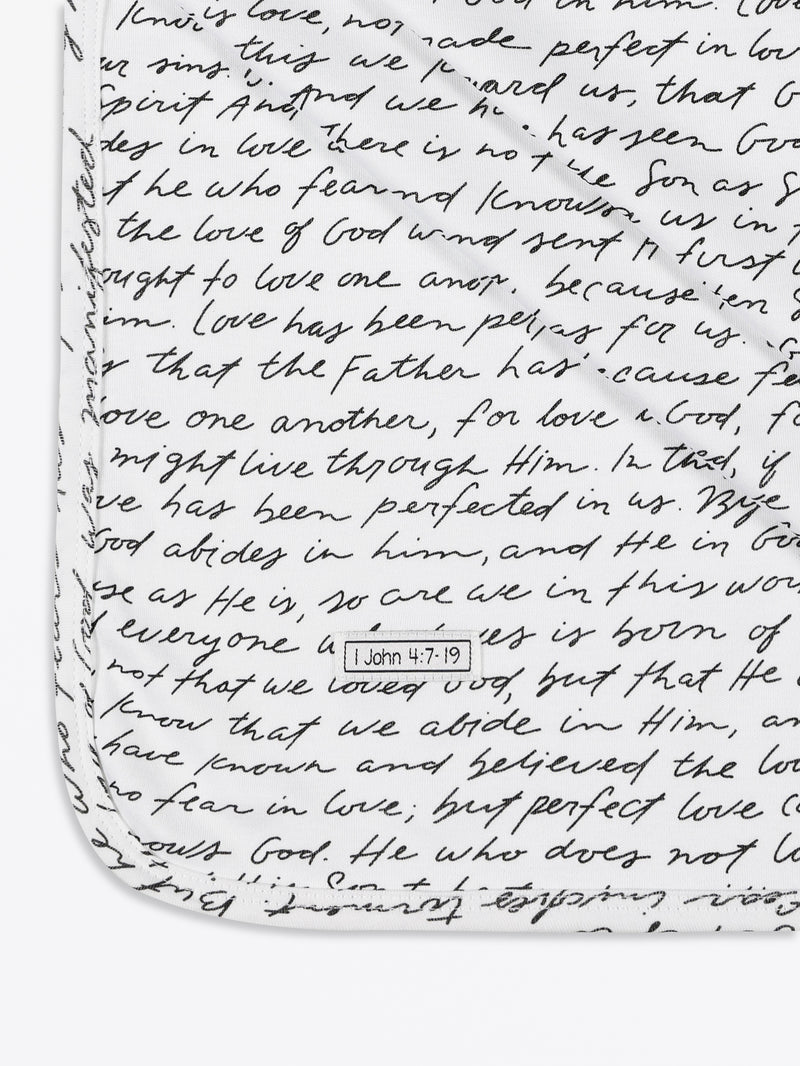 God in him. Love
is love, no made perfect in love
ur sins. this we toward us, that G
Spirit And, And we has seen God
des in love There is not the Son as S
t he who fear nd Knows us in
the love of God and sent first
ought to love one because
im. Love has been per as for us.
that the Father has cause fe
love one another, for love God, fo
might live through Him. In this, if
ve has been perfected in us.
God abides in him, and He in God
se as He is, so are we in this wor
everyone w loves is born of
1 John 4:7-19
not that we loved God, but that He
Know that we abide in Him, an
have known and believed the lov
no fear in love; but perfect love c
nows God. He who does not lo
But torment. involves fear
was manifested
who fears has